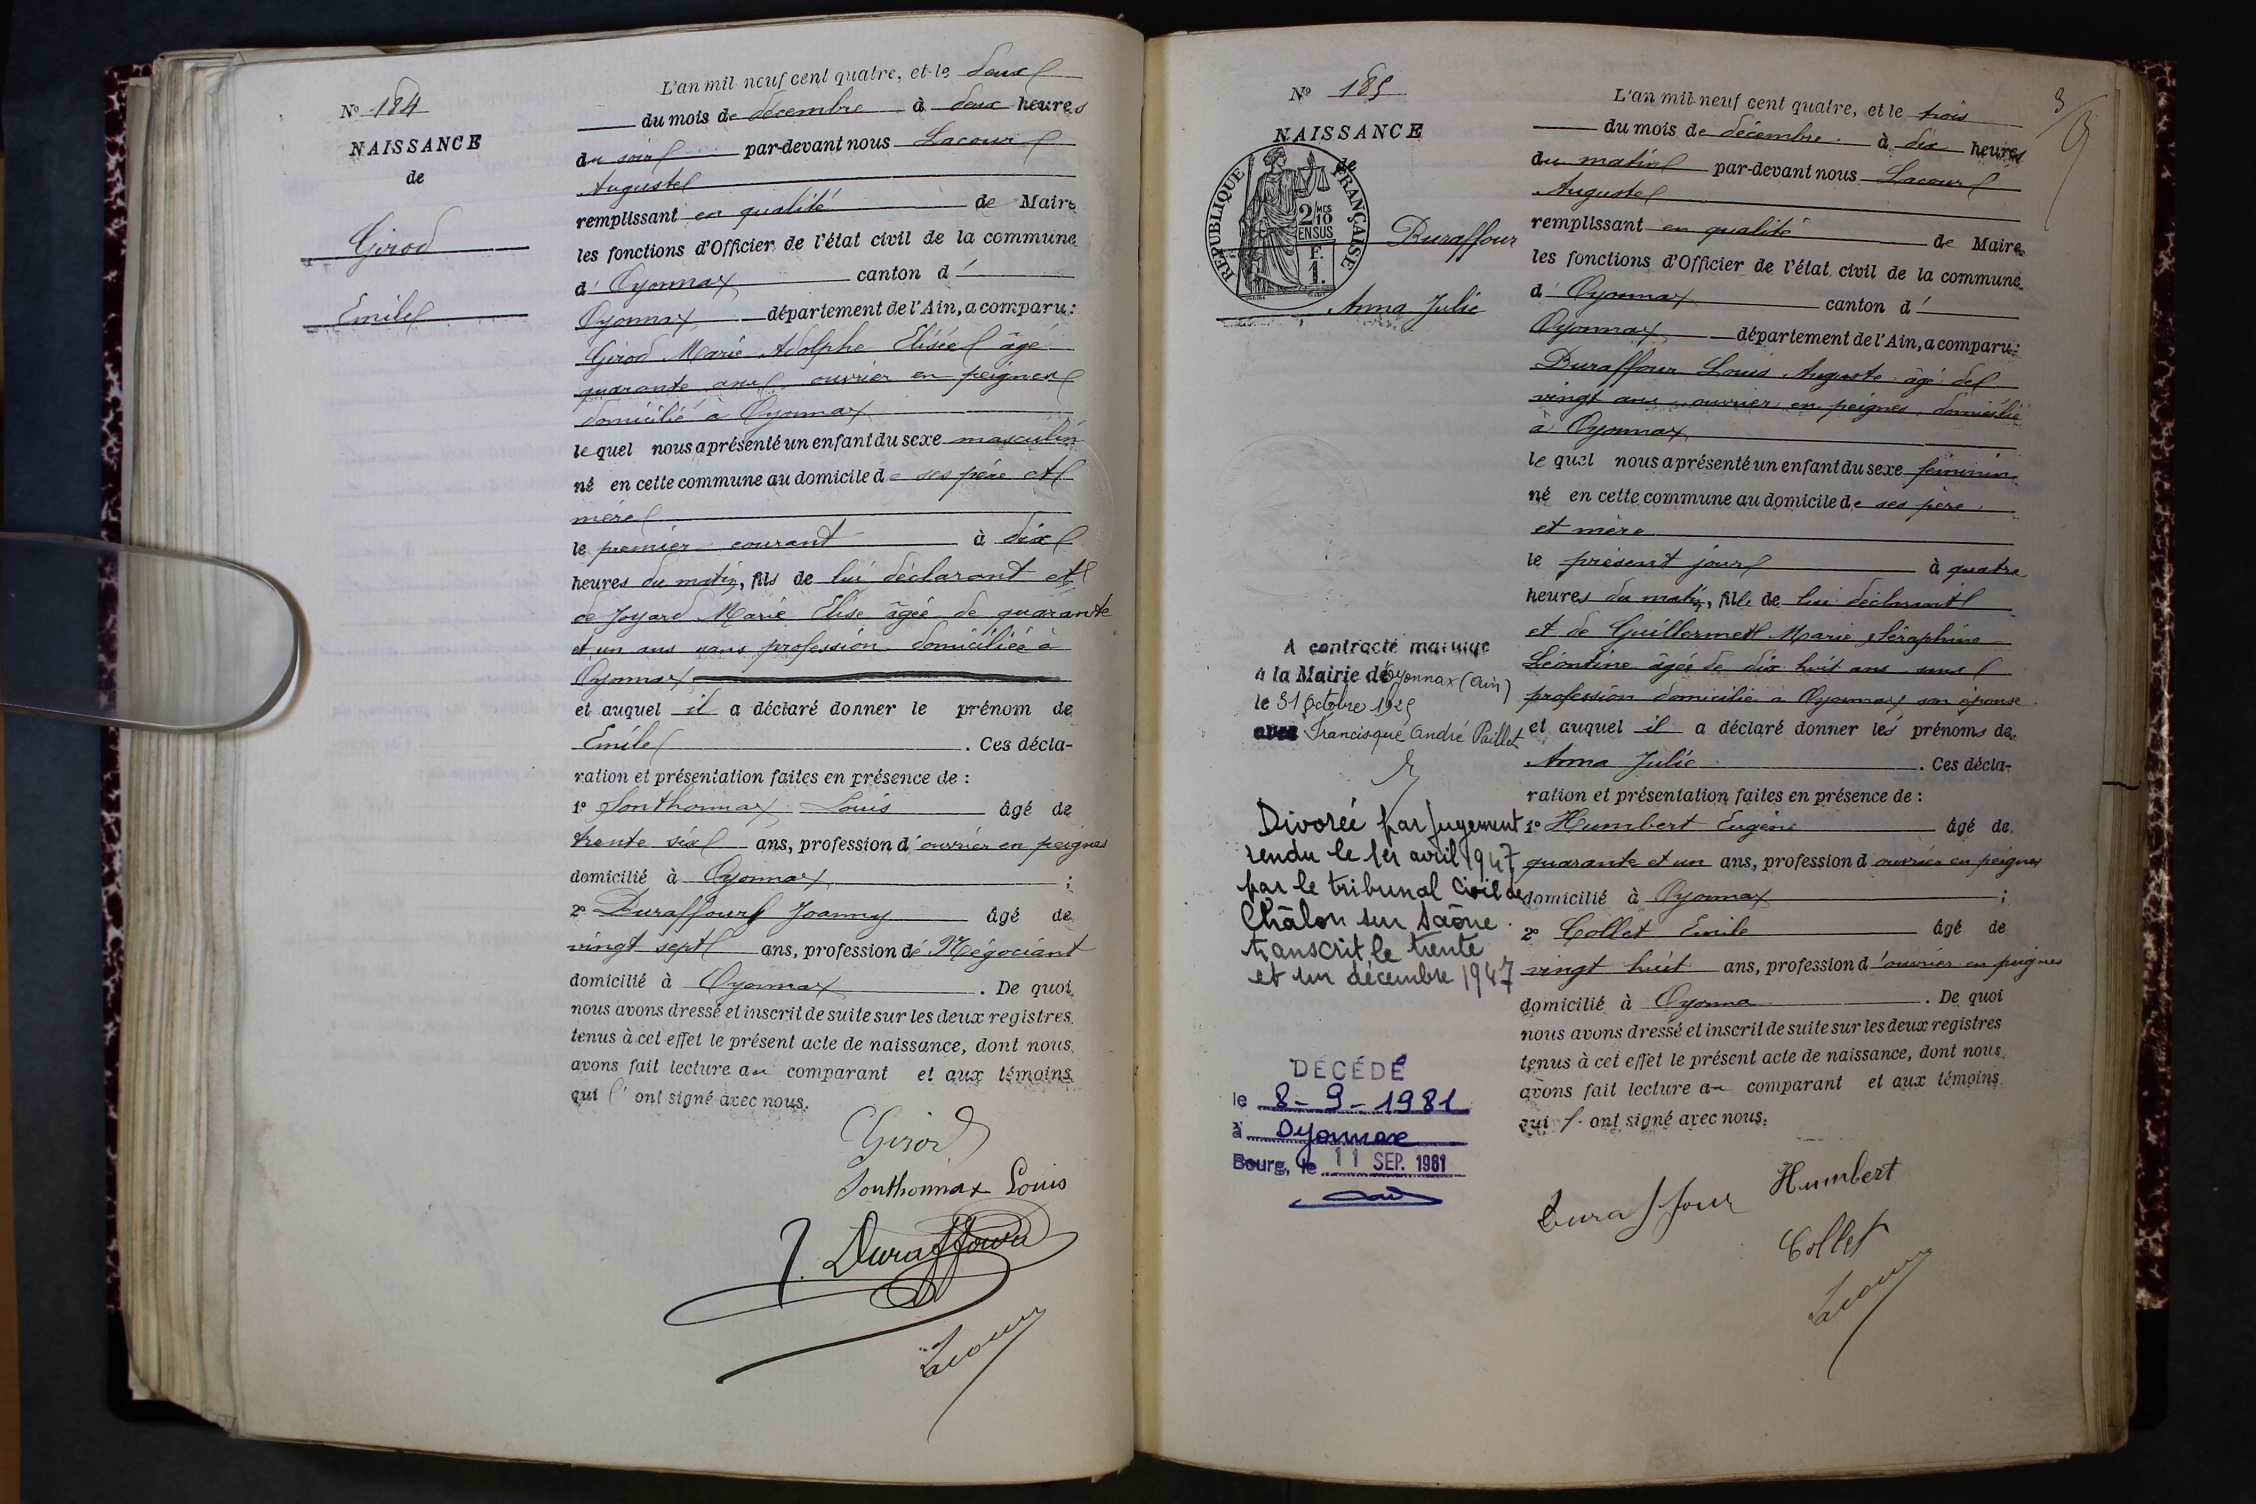 Nº 184
NAISSANCE
de
Girod
Emile
L'an mil neuf cent quatre, et le deux
du mois de décembre à deux heures
du soir par-devant nous Lacour
Auguste
remplissant en qualité de Maire
les fonctions d'Officier de l'état civil de la commune
d' Oyonnax canton d'
Oyonnax département de l'Ain, a comparu:
Girod Marie Adolphe Elisée âgé
quarante ans ouvrier en peignes
domicilié à Oyonnax
lequel nous a présenté un enfant du sexe masculin
né en cette commune au domicile de ses père et
mère
le premier courant à dix
heures du matin, fils de lui déclarant et
de Joyard Marie Elise âgée de quarante
et un ans sans profession domiciliée à
Oyonnax
et auquel il a déclaré donner le prénom de
Emile. Ces décla-
ration et présentation faites en présence de :
1º Sonthonnax Louis âgé de
trente six ans, profession d'ouvrier en peignes
domicilié à Oyonnax ;
2º Duraffourg Joanny âgé de
vingt sept ans, profession de Négociant
domicilié à Oyonnax. De quoi
nous avons dressé et inscrit de suite sur les deux registres
tenus à cet effet le présent acte de naissance, dont nous
avons fait lecture au comparant et aux témoins
qui l' ont signé avec nous.
Girod
Sonthonnax Louis
J. Duraffourg
Lacour
3
Nº 185
NAISSANCE
de
RÉPUBLIQUE FRANÇAISE
2/10 MES
EN SUS
F.
1.
Duraffour
Anna Julie
A contracté mariage
à la Mairie de Oyonnax (Ain)
le 31 Octobre 1925
avec Francisque André Paillet
Divorcée par Jugement
rendu le 1er avril 1947
par le tribunal Civil de
Châlon sur Saône.
transcrit le trente
et un décembre 1947
DÉCÉDÉ
le 8-9-1981
à Oyonnax
Bourg, le 11 SEP. 1981
L'an mil neuf cent quatre, et le trois
du mois de décembre à dix heures
du matin par-devant nous Lacour
Auguste
remplissant en qualité de Maire
les fonctions d'Officier de l'état civil de la commune
d' Oyonnax canton d'
Oyonnax département de l'Ain, a comparu:
Duraffour Louis Auguste âgé de
vingt ans ouvrier en peignes domicilié
à Oyonnax
lequel nous a présenté un enfant du sexe féminin
né en cette commune au domicile de ses père
et mère
le présent jour à quatre
heures du matin, fille de lui déclarant
et de Guillermet Marie Séraphine
Léontine âgée de dix huit ans sans
profession domicilié à Oyonnax son épouse
et auquel il a déclaré donner les prénoms de
Anna Julie. Ces décla-
ration et présentation faites en présence de :
1º Humbert Eugène âgé de
quarante et un ans, profession d ouvrier en peignes
domicilié à Oyonnax ;
2º Collet Emile âgé de
vingt huit ans, profession d'ouvrier en peignes
domicilié à Oyonna. De quoi
nous avons dressé et inscrit de suite sur les deux registres
tenus à cet effet le présent acte de naissance, dont nous
avons fait lecture au comparant et aux témoins
qui l' ont signé avec nous.
Duraffour Humbert
Collet
Lacour